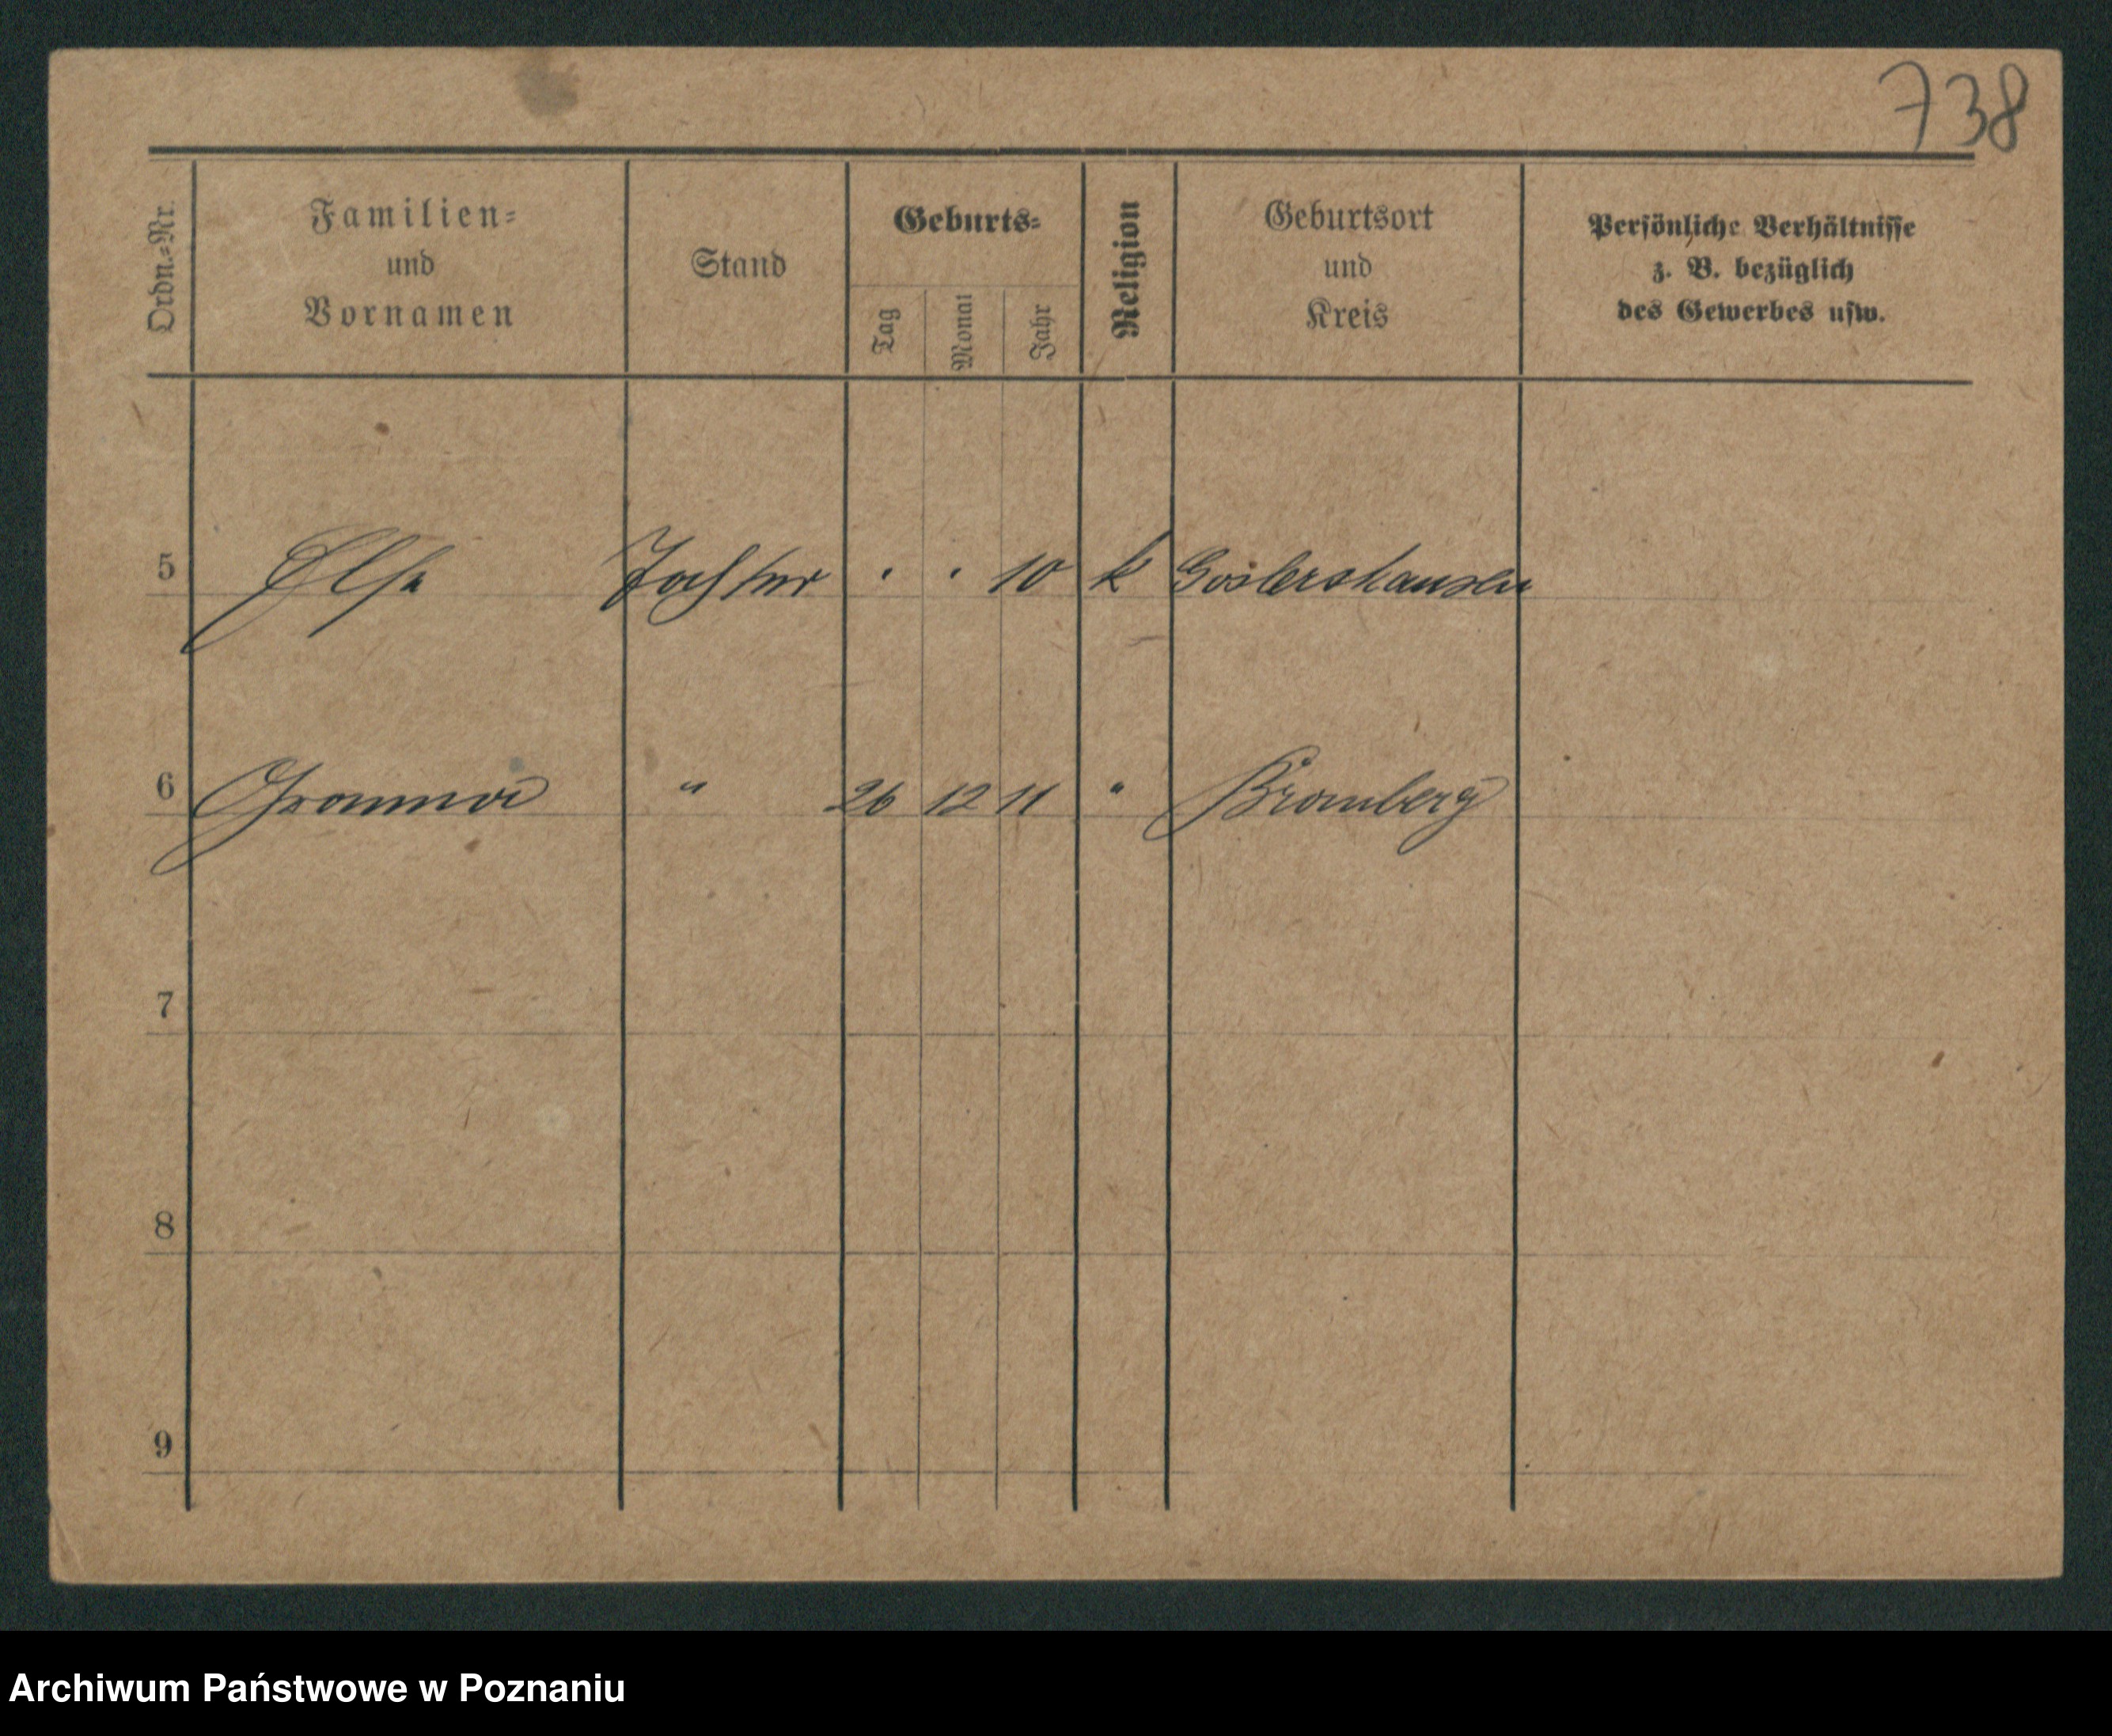 738
Ordn.-Nr.
Familien-
und
Vornamen
Stand
Geburts-
Tag
Monat
Jahr
Religion
Geburtsort
und
Kreis
Persönliche Verhältnisse
z. B. bezüglich
des Gewerbes usw.
5 Else Tochter . . 10 k Goslershausen
6 " 26 12 11 " Bromberg
7
8
9
Archiwum Państwowe w Poznaniu